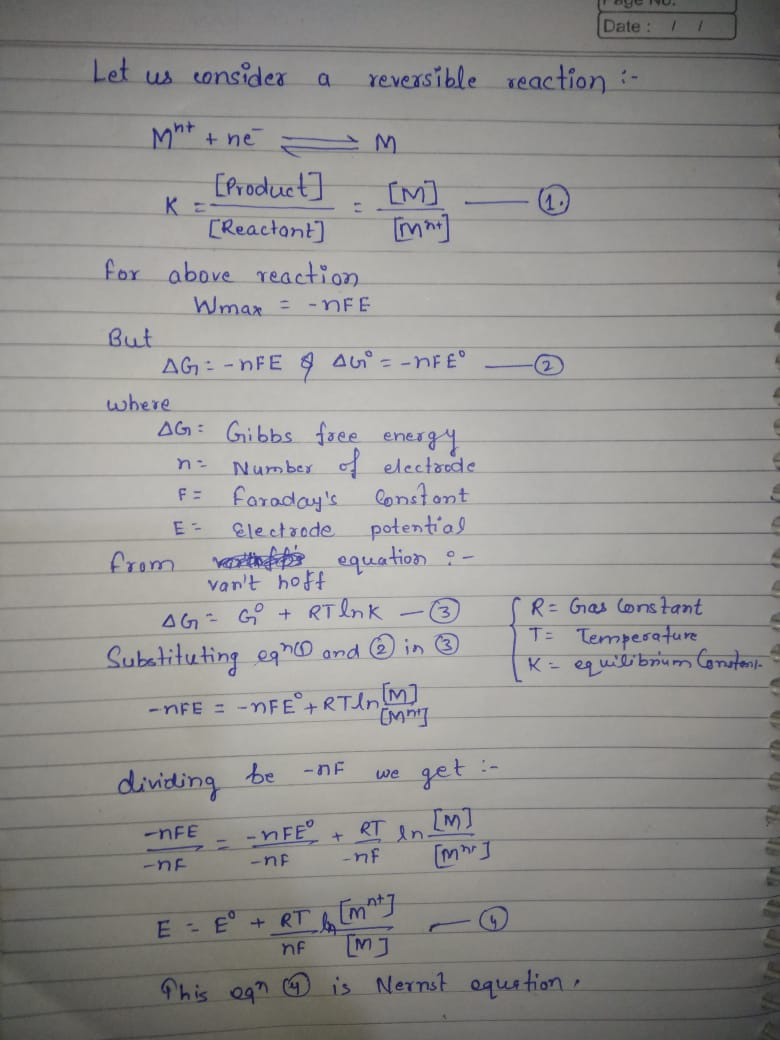 Page No.
Date : / /
Let us consider a reversible reaction :-
Mⁿ⁺ + ne⁻ ⇌ M
K = [Product] / [Reactant] = [M] / [Mⁿ⁺] — ①.
for above reaction
Wmax = -nFE
But
ΔG = -nFE & ΔG° = -nFE° — ②
where
ΔG = Gibbs free energy
n = Number of electrode
F = faraday's Constant
E = Electrode potential
from equation :-
van't hoff
ΔG = G° + RT lnK — ③
{ R = Gas Constant
T = Temperature
K = equilibrium Constant
Substituting eqn ① and ② in ③
-nFE = -nFE° + RT ln [M] / [Mⁿ⁺]
dividing be -nF we get :-
-nFE / -nF = -nFE° / -nF + RT / -nF ln [M] / [Mⁿ⁺]
E = E° + RT / nF ln [Mⁿ⁺] / [M] — ④
This eqn ④ is Nernst equation.